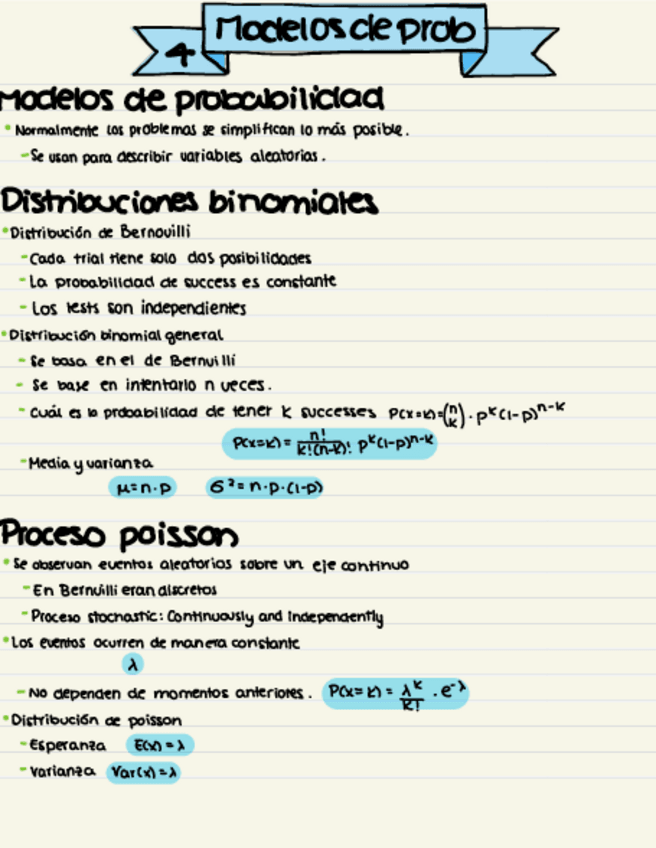 4
Modelos de prob
Modelos de probabilidad
• Normalmente los problemas se simplifican lo más posible.
- Se usan para describir variables aleatorias.
Distribuciones binomiales
• Distribución de Bernouilli
- Cada trial tiene solo dos posibilidades
- La probabilidad de success es constante
- Los tests son independientes
• Distribución binomial general
- Se basa en el de Bernuilli
- Se base en intentarlo n veces.
- Cuál es la probabilidad de tener k successes P(x=k)=(n k)·p^k(1-p)^n-k
P(x=k)= n!/k!(n-k)! p^k(1-p)^n-k
- Media y varianza
μ=n·p σ²=n·p·(1-p)
Proceso poisson
• Se observan eventos aleatorios sobre un eje continuo
- En Bernuilli eran discretos
- Proceso stochastic: Continuously and Independently
• Los eventos ocurren de manera constante
λ
- No dependen de momentos anteriores. P(x=k)= λ^k/k! · e^-λ
• Distribución de poisson
- Esperanza E(x)=λ
- Varianza Var(x)=λ